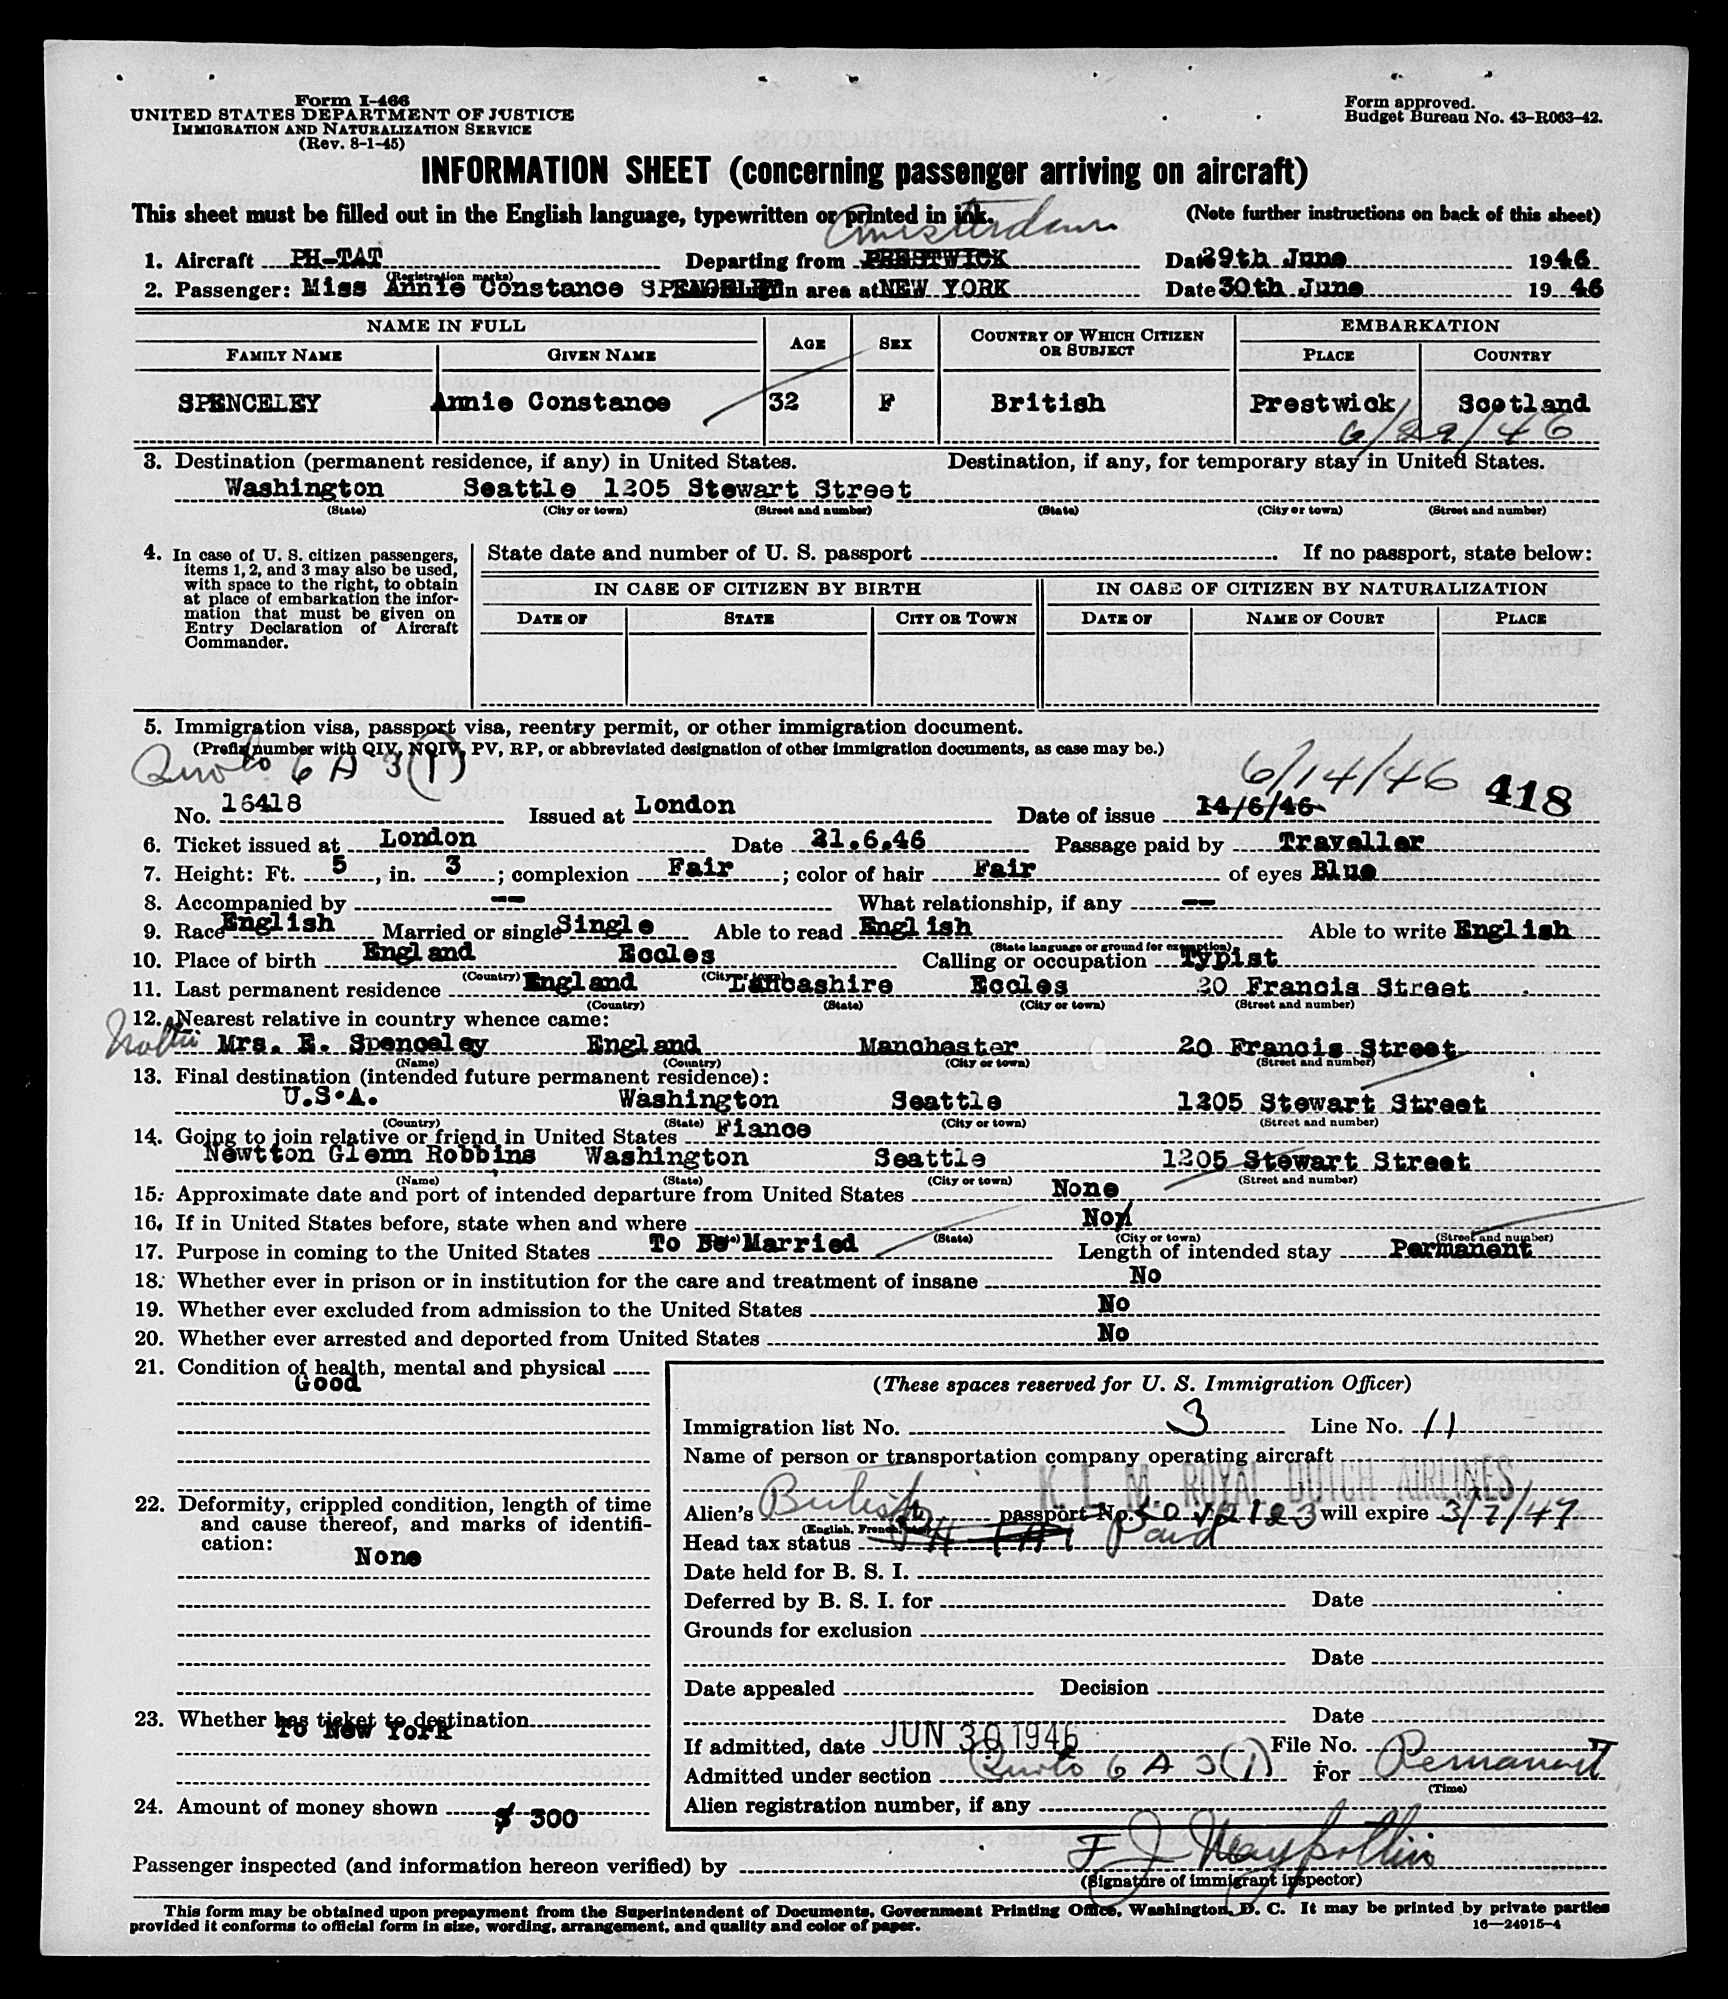 Form I-466
UNITED STATES DEPARTMENT OF JUSTICE
IMMIGRATION AND NATURALIZATION SERVICE
(Rev. 8-1-45)
Form approved.
Budget Bureau No. 43-R063-42.
INFORMATION SHEET (concerning passenger arriving on aircraft)
This sheet must be filled out in the English language, typewritten or printed in ink. (Note further instructions on back of this sheet)
Amsterdam
1. Aircraft PH-TAT Departing from PRESTWICK Date 29th June 1946
(Registration marks)
2. Passenger: Miss Annie Constance SPENCELEY in area at NEW YORK Date 30th June 19 46
NAME IN FULL AGE SEX COUNTRY OF WHICH CITIZEN OR SUBJECT EMBARKATION
FAMILY NAME GIVEN NAME PLACE COUNTRY
SPENCELEY Annie Constance 32 F British Prestwick Scotland
6/29/46
3. Destination (permanent residence, if any) in United States. Destination, if any, for temporary stay in United States.
Washington Seattle 1205 Stewart Street
(State) (City or town) (Street and number) (State) (City or town) (Street and number)
4. In case of U. S. citizen passengers, items 1, 2, and 3 may also be used, with space to the right, to obtain at place of embarkation the information that must be given on Entry Declaration of Aircraft Commander.
State date and number of U. S. passport If no passport, state below:
IN CASE OF CITIZEN BY BIRTH IN CASE OF CITIZEN BY NATURALIZATION
DATE OF STATE CITY OR TOWN DATE OF NAME OF COURT PLACE
5. Immigration visa, passport visa, reentry permit, or other immigration document.
(Prefix number with QIV, NQIV, PV, RP, or abbreviated designation of other immigration documents, as case may be.)
Quota 6 A 3(1) 6/14/46 418
No. 16418 Issued at London Date of issue 14/6/46
6. Ticket issued at London Date 21.6.46 Passage paid by Traveller
7. Height: Ft. 5, in. 3; complexion Fair; color of hair Fair of eyes Blue
8. Accompanied by -- What relationship, if any --
9. Race English Married or single Single Able to read English Able to write English
(State language or ground for exemption)
10. Place of birth England Eccles Calling or occupation Typist
(Country) (City or town)
11. Last permanent residence England Lancashire Eccles 20 Francis Street
(Country) (State) (City or town) (Street and number)
12. Nearest relative in country whence came:
Mrs. E. Spenceley England Manchester 20 Francis Street
(Name) (Country) (City or town) (Street and number)
13. Final destination (intended future permanent residence):
U.S.A. Washington Seattle 1205 Stewart Street
(Country) (State) (City or town) (Street and number)
14. Going to join relative or friend in United States Fiance
Newtton Glenn Robbins Washington Seattle 1205 Stewart Street
(Name) (State) (City or town) (Street and number)
15. Approximate date and port of intended departure from United States None
16. If in United States before, state when and where No
(State) (City or town) (Street and number)
17. Purpose in coming to the United States To Be Married Length of intended stay Permanent
18. Whether ever in prison or in institution for the care and treatment of insane No
19. Whether ever excluded from admission to the United States No
20. Whether ever arrested and deported from United States No
21. Condition of health, mental and physical
Good
22. Deformity, crippled condition, length of time and cause thereof, and marks of identification:
None
23. Whether has ticket to destination
To New York
24. Amount of money shown $ 300
(These spaces reserved for U. S. Immigration Officer)
Immigration list No. 3 Line No. 11
Name of person or transportation company operating aircraft
K. L. M. ROYAL DUTCH AIRLINES
Alien's British passport No. will expire 3/7/47
(English, French, etc.)
Head tax status Paid
Date held for B. S. I.
Deferred by B. S. I. for Date
Grounds for exclusion
Date
Date appealed Decision
Date
If admitted, date JUN 30 1946 File No.
Admitted under section Quota 6 A 3(1) For Permanent
(Time)
Alien registration number, if any
Passenger inspected (and information hereon verified) by
(Signature of immigrant inspector)
This form may be obtained upon prepayment from the Superintendent of Documents, Government Printing Office, Washington, D. C. It may be printed by private parties
provided it conforms to official form in size, wording, arrangement, and quality and color of paper. 16—24915-4